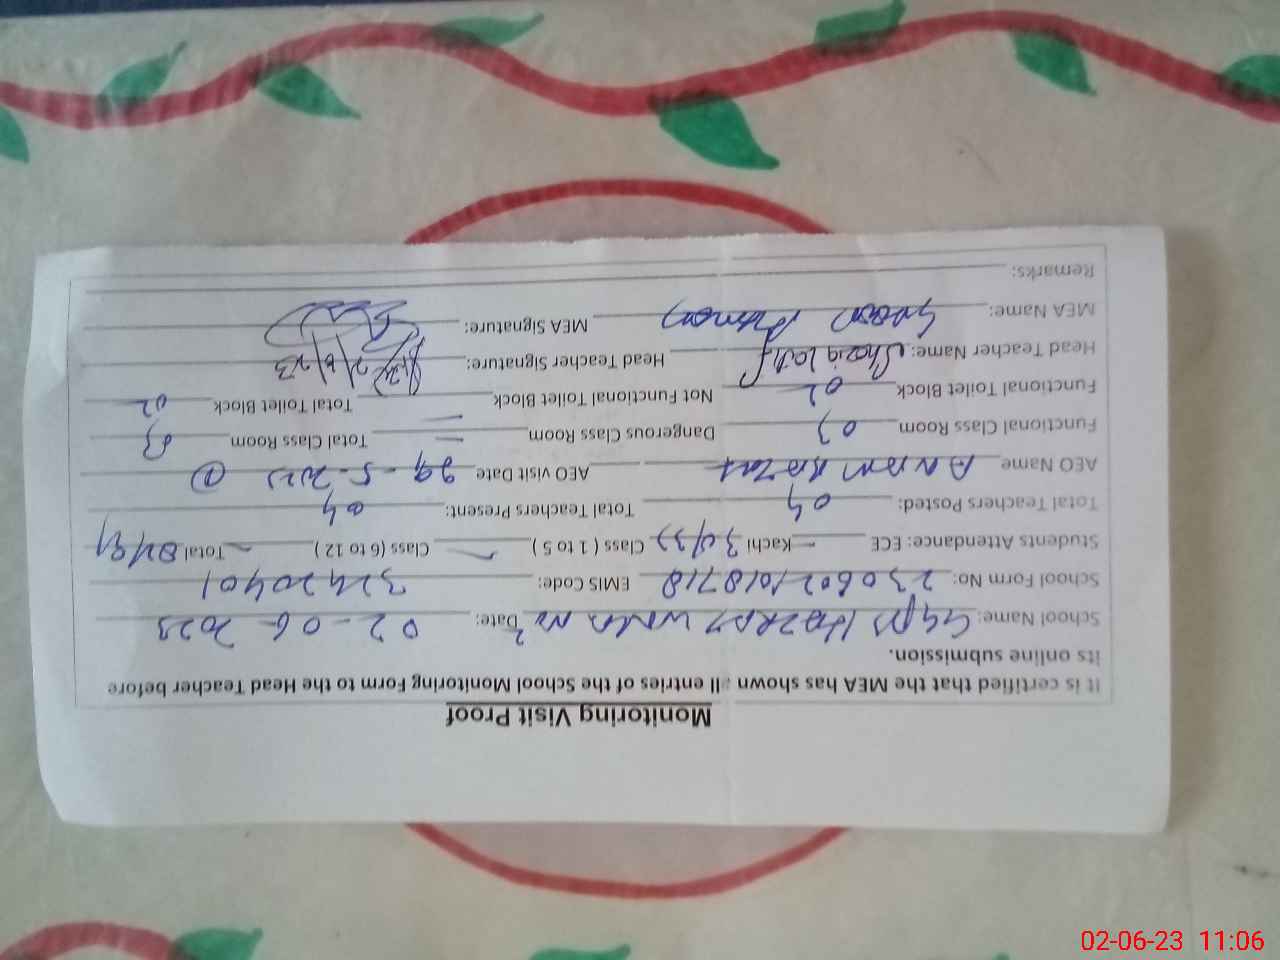 Monitoring Visit Proof
It is certified that the MEA has shown all entries of the School Monitoring Form to the Head Teacher before
its online submission.
School Name: GGPS Date: 02-06-2023
School Form No: 230602101871 EMIS Code: 32420401
Students Attendance: ECE - Kachi Class ( 1 to 5 ) Class (6 to 12 ) Total
Total Teachers Posted: 04 Total Teachers Present: 04
AEO Name Anam AEO visit Date 29-5-2023
Functional Class Room 03 Dangerous Class Room - Total Class Room 03
Functional Toilet Block 02 Not Functional Toilet Block - Total Toilet Block 02
Head Teacher Name: Shazia Latif Head Teacher Signature: 2/6/23
MEA Name: MEA Signature:
Remarks:
02-06-23 11:06